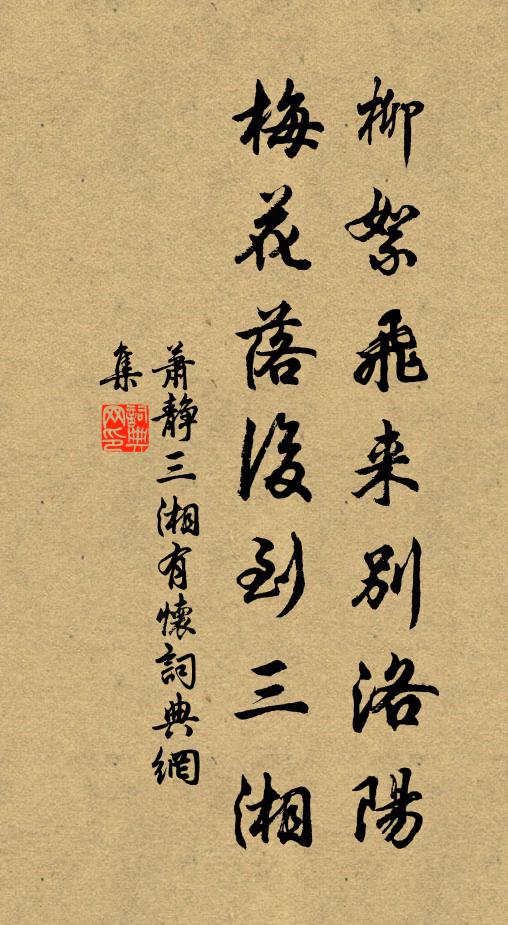 柳絮飛来別洛陽
梅花落後到三湘
蕭靜三湘有懷詞典網
集
詞典
网印